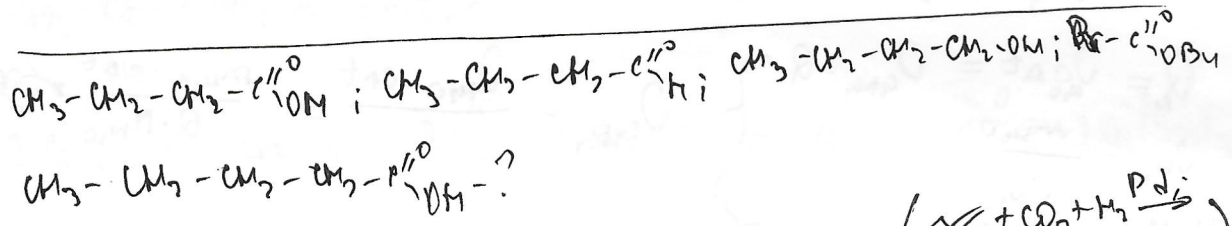 CH₃-CH₂-CH₂-C(=O)OH ; CH₃-CH₂-CH₂-C(=O)H ; CH₃-CH₂-CH₂-CH₂-OH ; Pr-C(=O)OBu
CH₃-CH₂-CH₂-CH₂-C(=O)OH-?
+CO₂+H₂ Pd;